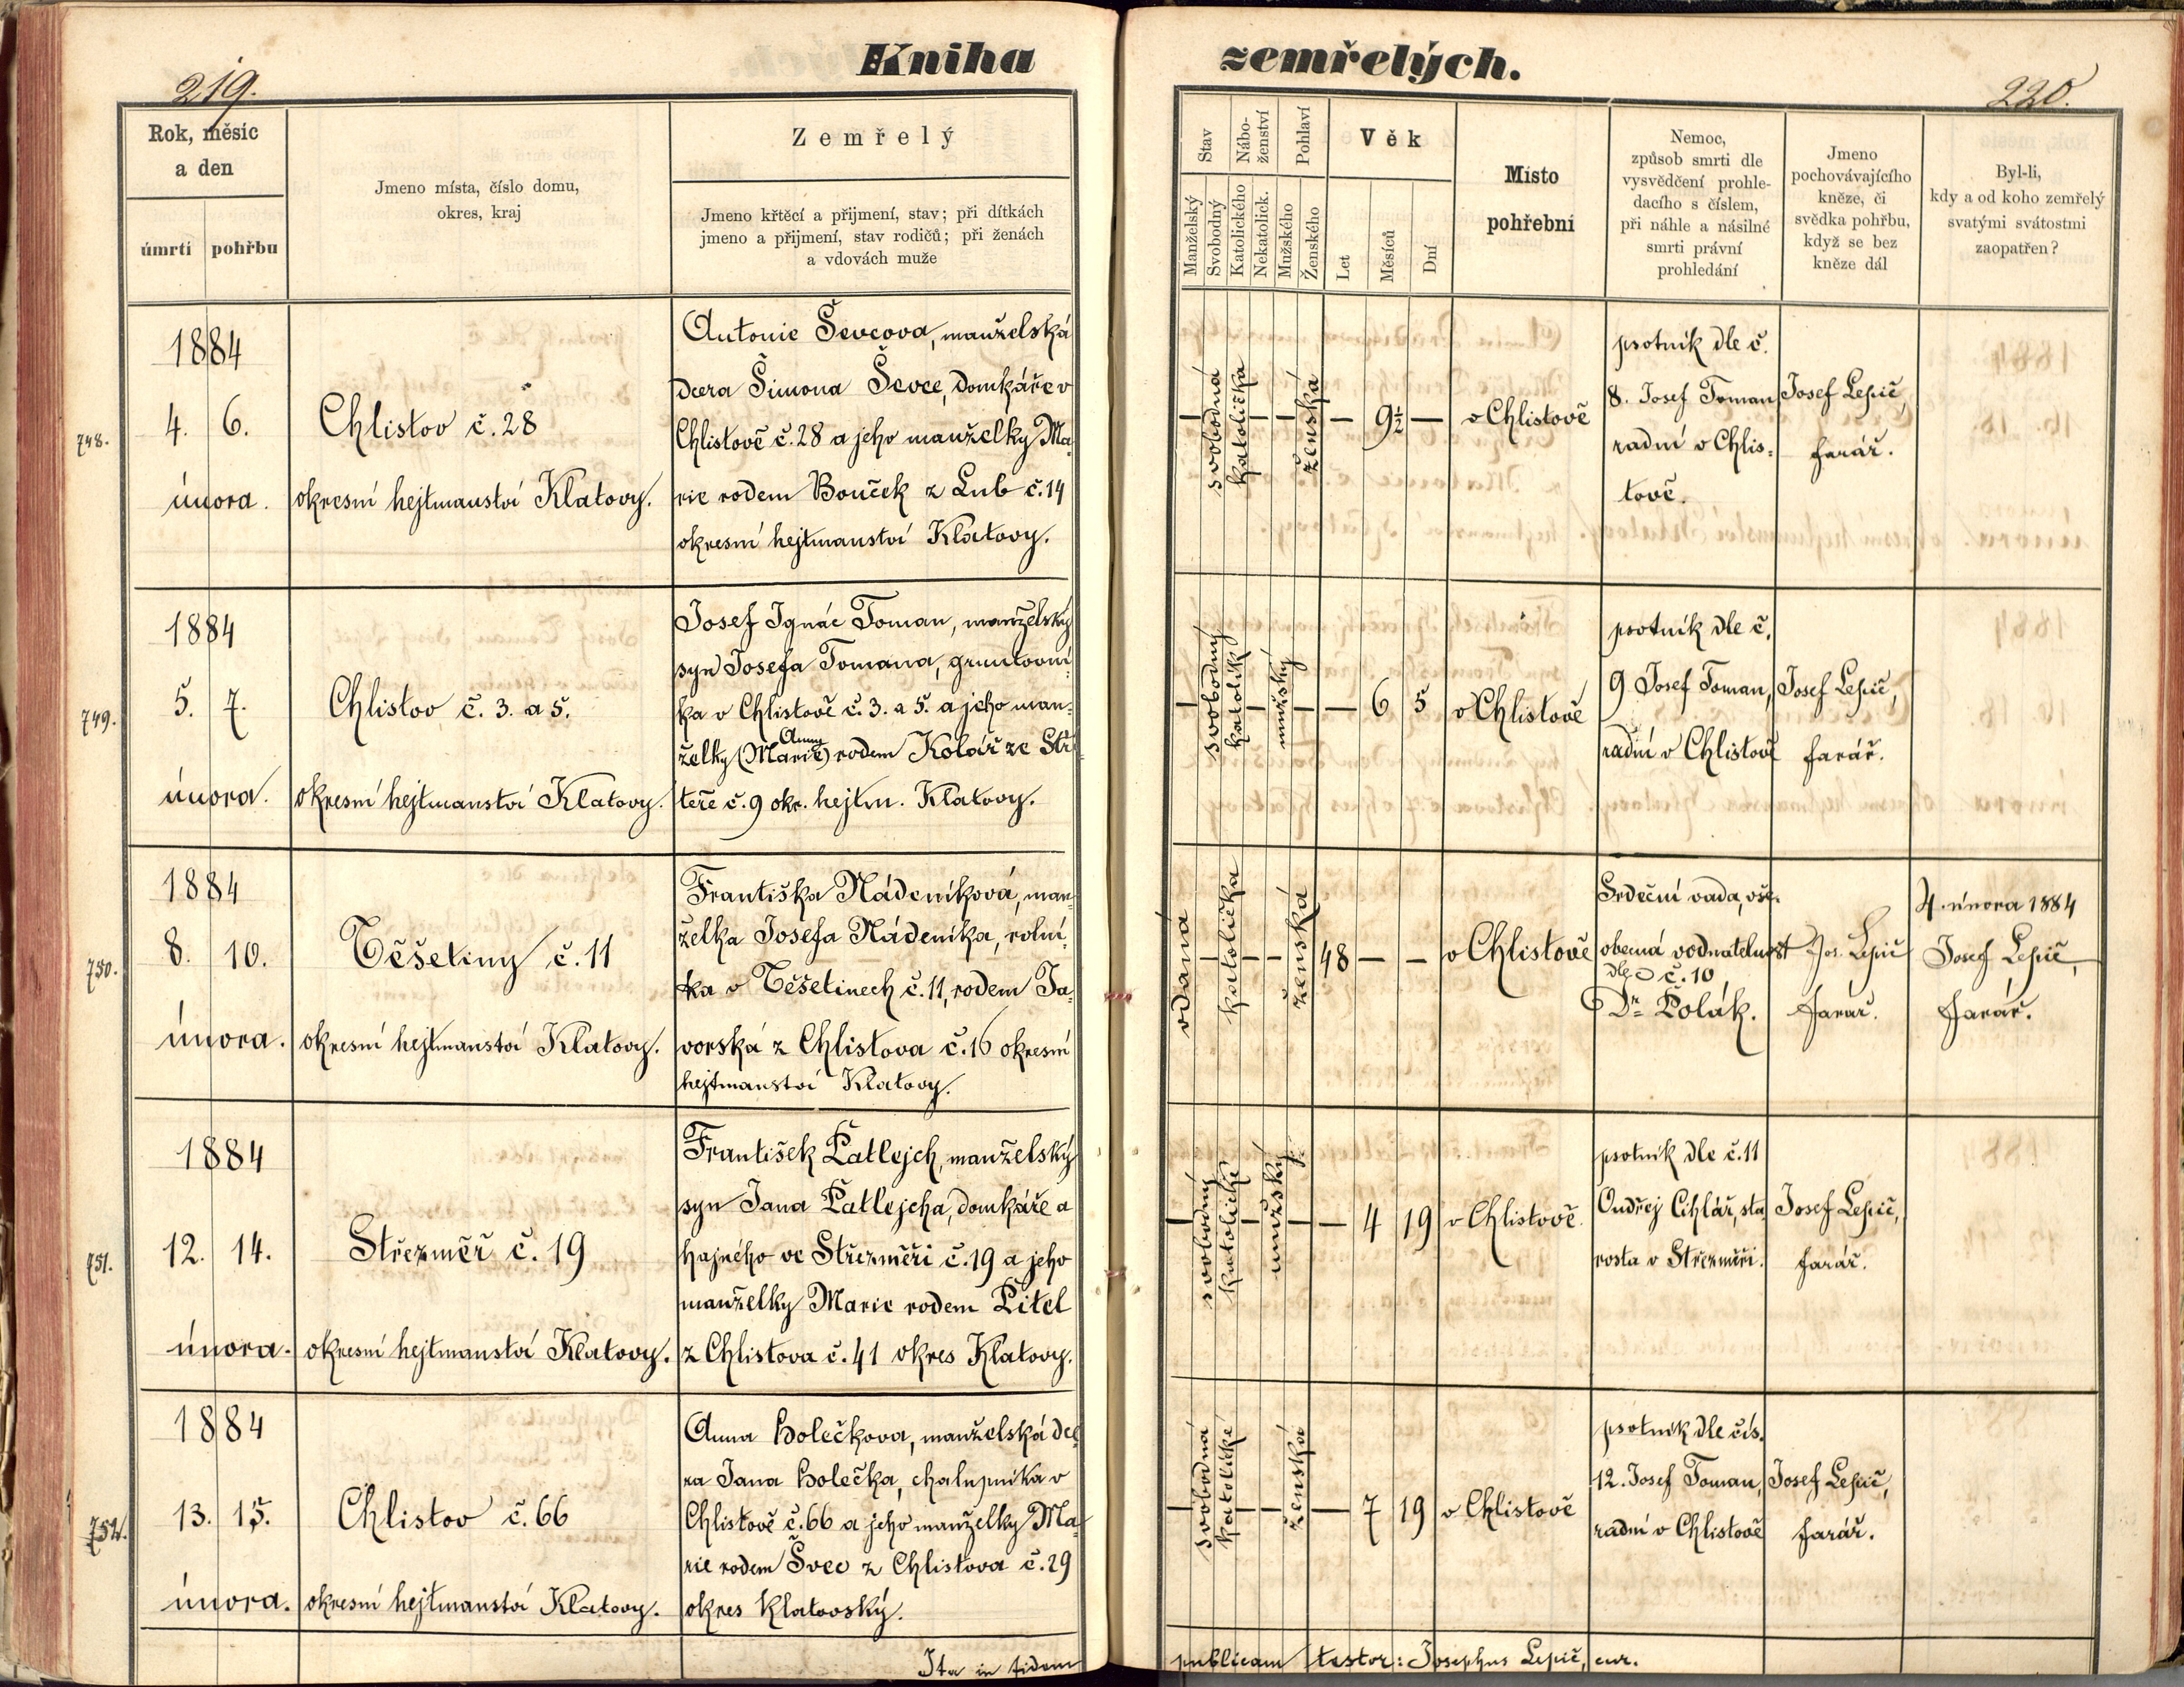 Kniha zemřelých.
219.
220.
Rok, měsíc
a den
úmrtí pohřbu
Jmeno místa, číslo domu,
okres, kraj
Zemřelý
Jmeno křtěcí a přijmení, stav; při dítkách
jmeno a přijmení, stav rodičů; při ženách
a vdovách muže
Stav
Manželský
Svobodný
Nábo-
ženství
Katolického
Nekatolick.
Pohlaví
Mužského
Ženského
Věk
Let
Měsíců
Dní
Místo
pohřební
Nemoc,
způsob smrti dle
vysvědčení prohle-
dacího s číslem,
při náhle a násilné
smrti právní
prohledání
Jmeno
pochovávajícího
kněze, či
svědka pohřbu,
když se bez
kněze dál
Byl-li,
kdy a od koho zemřelý
svatými svátostmi
zaopatřen?
748.
1884
4. 6.
února.
Chlistov č. 28
okresní hejtmanství Klatovy.
Antonie Ševcova, manželská
dcera Šimona Ševce, domkáře v
Chlistově č. 28 a jeho manželky Ma-
rie rodem Bouček z Lub č. 14
okresní hejtmanství Klatovy.
— svobodná katolička — — ženská — 9½ —
v Chlistově
psotník dle č.
8. Josef Toman
radní v Chlis-
tově.
Josef Lepič,
farář.
749.
1884
5. 7.
února.
Chlistov č. 3. a 5.
okresní hejtmanství Klatovy.
Josef Ignác Toman, manželský
syn Josefa Tomana, gruntovní-
ka v Chlistově č. 3. a 5. a jeho man-
Anny
želky (Marie) rodem Kolář ze Stř-
teře č. 9 okr. hejtm. Klatovy.
— svobodný katolík — mužský — — 6 5
v Chlistově
psotník dle č.
9 Josef Toman,
radní v Chlistově
Josef Lepič,
farář.
750.
1884
8. 10.
února.
Těšetiny č. 11
okresní hejtmanství Klatovy.
Františka Nádeníková, man-
želka Josefa Nádeníka, rolní-
ka v Těšetinech č. 11, rodem Ja-
vorská z Chlistova č. 16 okresní
hejtmanství Klatovy.
vdaná — katolička — — ženská 48 — —
v Chlistově
Srdeční vada, vše-
obecná vodnatelnost
dle č. 10
Dr. Polák.
Jos. Lepič
farář.
4. února 1884
Josef Lepič,
farář.
751.
1884
12. 14.
února.
Střezměř č. 19
okresní hejtmanství Klatovy.
František Patlejch, manželský
syn Jana Patlejcha, domkáře a
hajného ve Střezměři č. 19 a jeho
manželky Marie rodem Pitel
z Chlistova č. 41 okres Klatovy.
— svobodný katolické — mužský — — 4 19
v Chlistově.
psotník dle č. 11
Ondřej Cihlář, sta-
rosta v Střezměři.
Josef Lepič,
farář.
752.
1884
13. 15.
února.
Chlistov č. 66
okresní hejtmanství Klatovy.
Anna Holečkova, manželská dce-
ra Jana Holečka, chalupníka v
Chlistově č. 66 a jeho manželky Ma-
rie rodem Švec z Chlistova č. 29
okres Klatovský.
— svobodná katolické — — ženská — 7 19
v Chlistově
psotník dle čís.
12. Josef Toman,
radní v Chlistově
Josef Lepič,
farář.
Ita in fidem publicam testor: Josephus Lepič, cur.